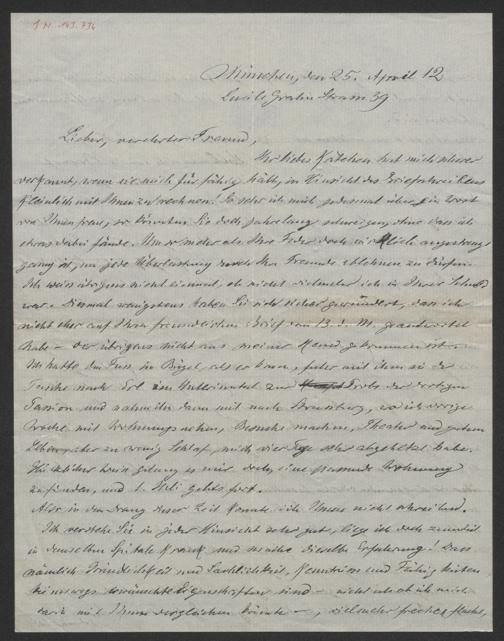 I.N. 143.734
München, den 25. April 12
Lucile Grahn Strasse 39
Lieber, verehrter Freund,
Ihr liebes Kätchen hat mich schwer
verkannt, wenn sie mich für fähig hält, in Hinsicht des Briefschreibens
kleinlich mit Ihnen zu rechnen. So sehr ich mich jedesmal über ein Wort
von Ihnen freue, so könnten Sie doch jahrelang schweigen, ohne dass ich
etwas dabei fände. Um so mehr als Ihre Feder doch wirklich angestrengt
genug ist, um jede Überlastung durch Ihre Freunde ablehnen zu dürfen.
Ich weiss übrigens nicht einmal, ob nicht vielmehr ich in Ihrer Schuld
war. Diesmal wenigstens haben Sie sich sicher gewundert, dass ich
nicht eher auf Ihren freundlichen Brief vom 13. d. M. geantwortet
habe – der übrigens nicht aus meiner Hand gekommen ist.
Ich hatte den Fuss im Bügel als er kam, fuhr mit ihm in der
Tasche nach Erl im Unterinntal zur Probe der dortigen
Passion und nahm ihn dann mit nach Bromberg, wo ich vorige
Woche mit Wohnungsuchen, Besuche machen, Theater und gutem
Leben, aber zu wenig Schlaf, mich vier Tage abgehetzt habe.
Glücklicher Weise gelang es mir doch, eine passende Wohnung
zu finden, und 1. Juli gehts fort.
Also in dem Drang dieser Zeit konnte ich Ihnen nicht schreiben.
Ich verstehe Sie in jeder Hinsicht sehr gut, liege ich doch zumteil
in demselben Spitale krank und mache dieselbe Erfahrung! Dass
nämlich Gründlichkeit und Sachlichkeit, Kenntnisse und Fähigkeiten
keineswegs erwünschte Eigenschaften sind – nicht als ob ich mich
darin mit Ihnen vergleichen könnte –, vielmehr freches